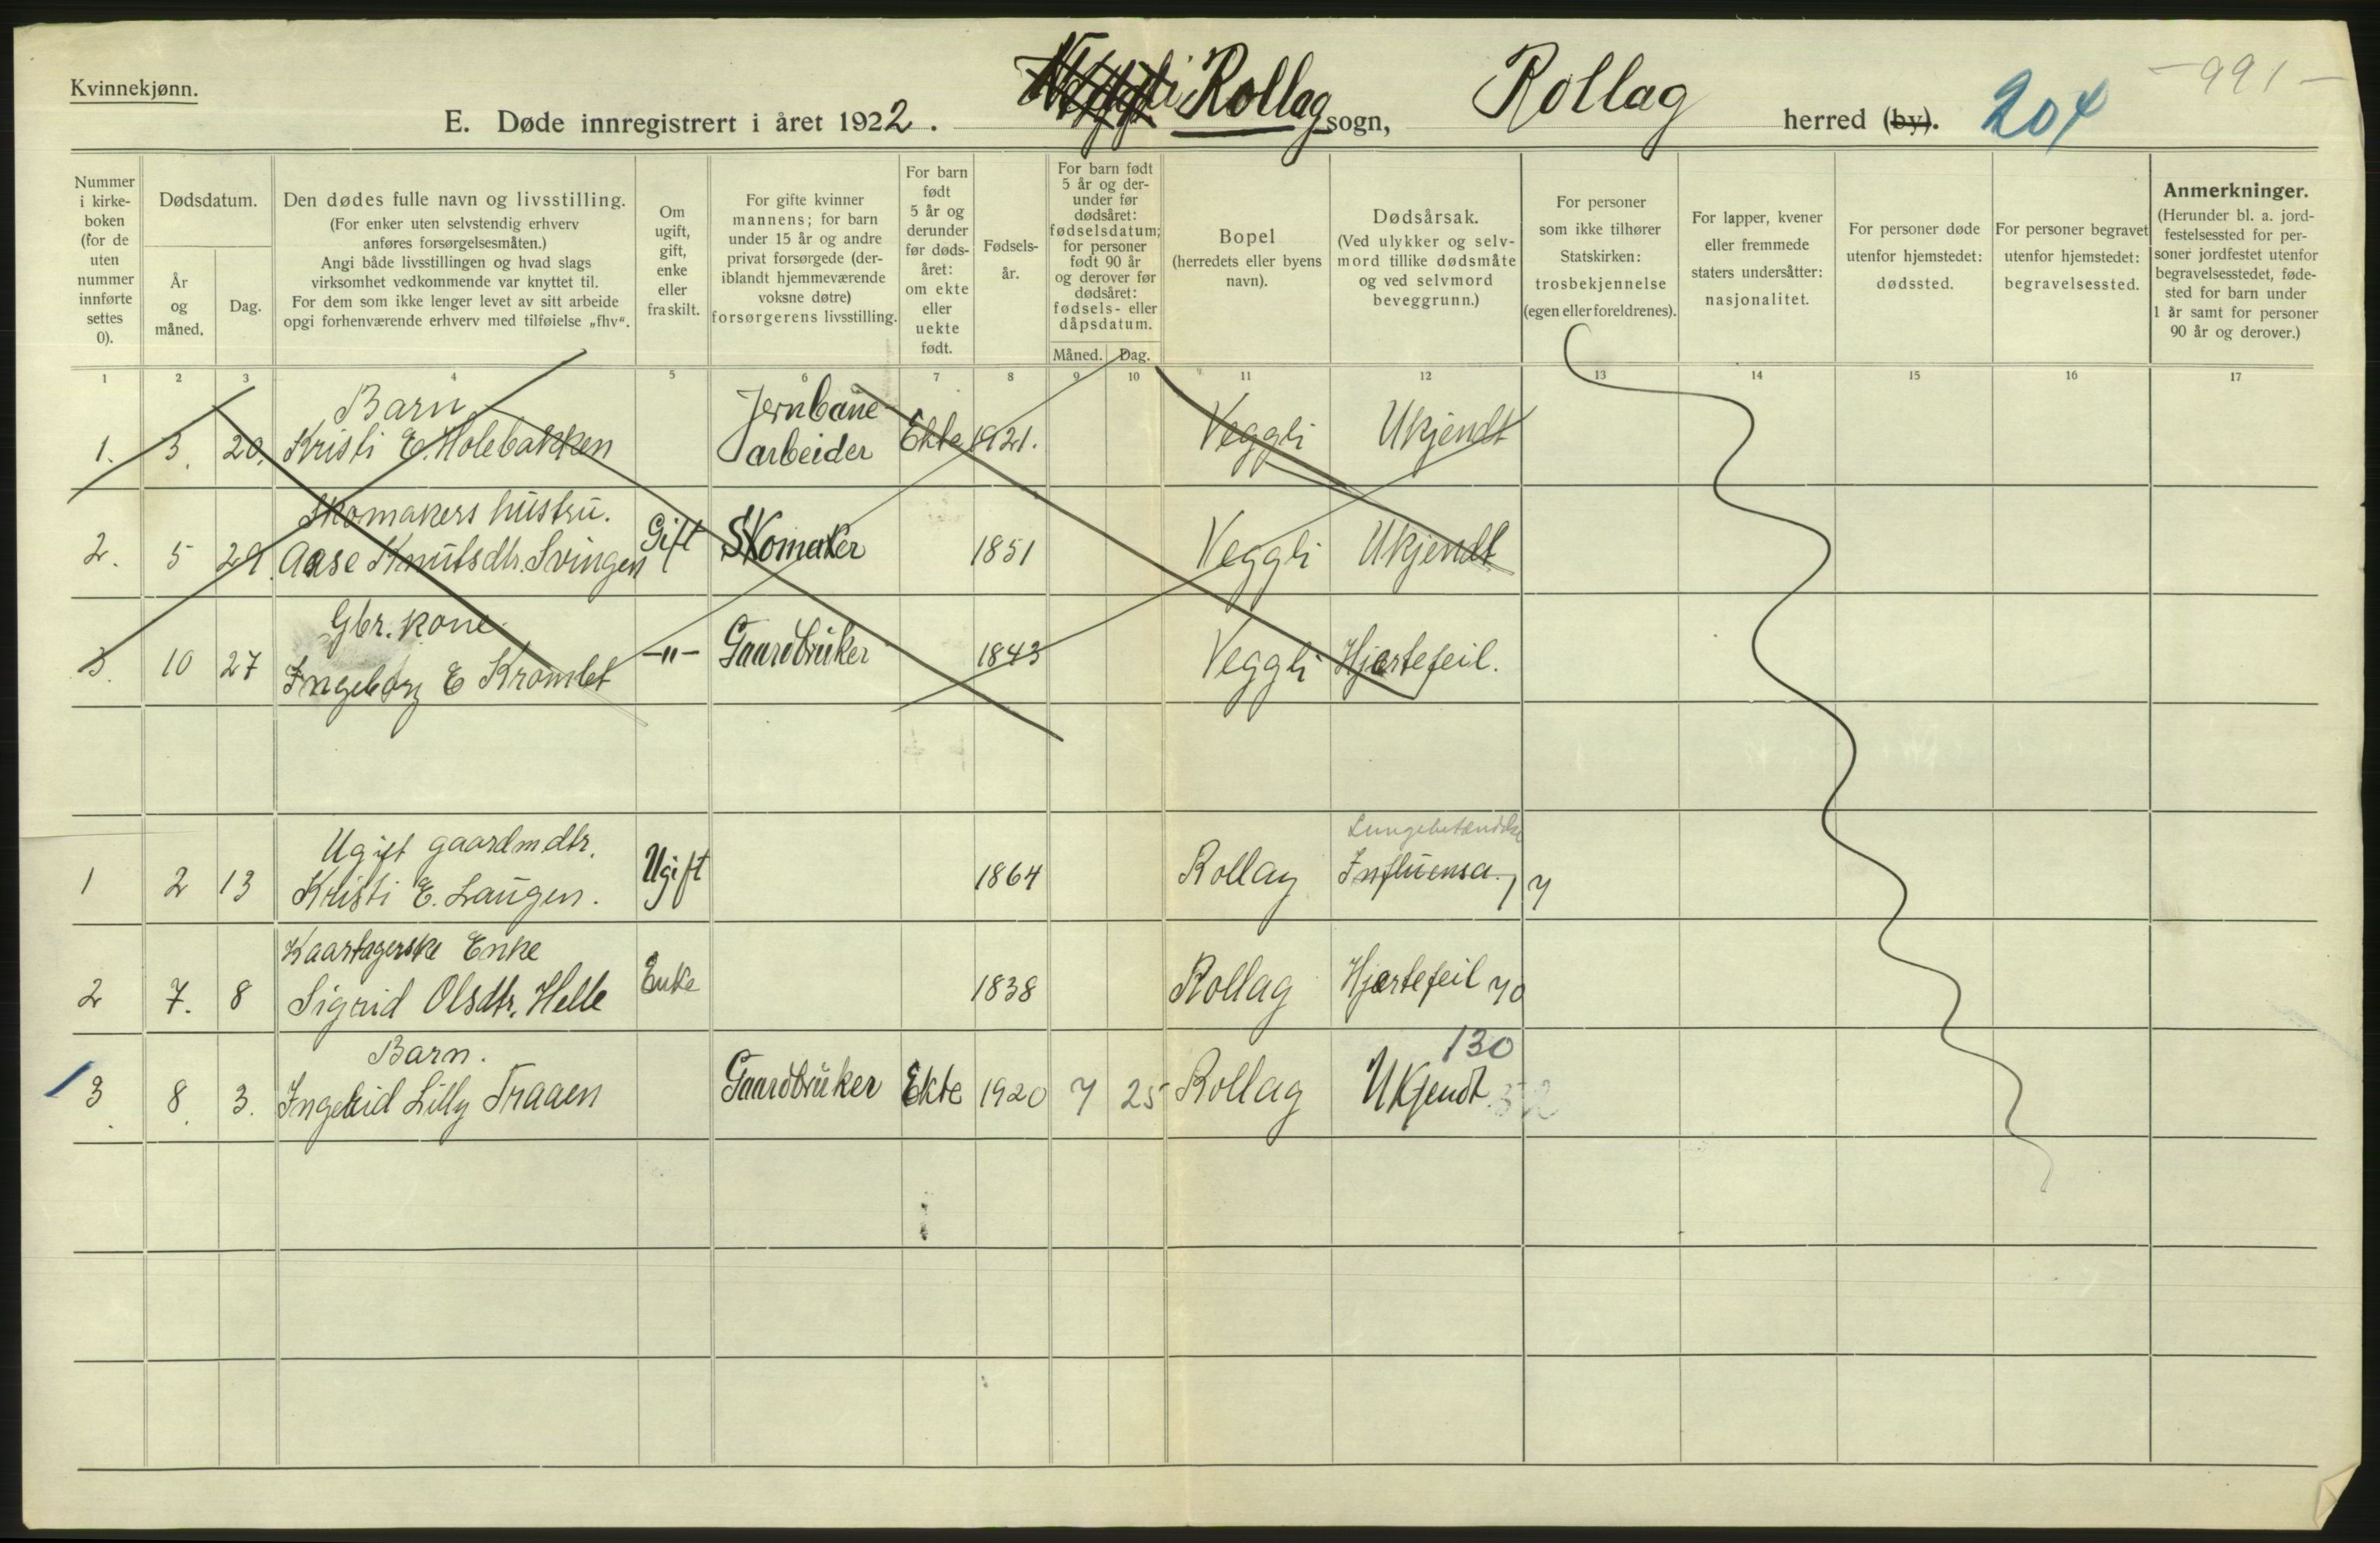 Kvinnekjønn.
— 991 —
E. Døde innregistrert i året 1922. Veggli Rollag sogn, Rollag herred (by). 204
Nummer i kirkeboken (for de uten nummer innførte settes 0).
Dødsdatum.
År og måned.
Dag.
Den dødes fulle navn og livsstilling.
(For enker uten selvstendig erhverv anføres forsørgelsesmåten.)
Angi både livsstillingen og hvad slags virksomhet vedkommende var knyttet til.
For dem som ikke lenger levet av sitt arbeide opgi forhenværende erhverv med tilføielse „fhv“.
Om ugift, gift, enke eller fraskilt.
For gifte kvinner mannens; for barn under 15 år og andre privat forsørgede (deriblandt hjemmeværende voksne døtre) forsørgerens livsstilling.
For barn født 5 år og derunder før dødsåret: om ekte eller uekte født.
Fødselsår.
For barn født 5 år og derunder før dødsåret: fødselsdatum; for personer født 90 år og derover før dødsåret: fødsels- eller dåpsdatum.
Måned. Dag.
Bopel
(herredets eller byens navn).
Dødsårsak.
(Ved ulykker og selvmord tillike dødsmåte og ved selvmord beveggrunn.)
For personer som ikke tilhører Statskirken: trosbekjennelse (egen eller foreldrenes).
For lapper, kvener eller fremmede staters undersåtter: nasjonalitet.
For personer døde utenfor hjemstedet: dødssted.
For personer begravet utenfor hjemstedet: begravelsessted.
Anmerkninger.
(Herunder bl. a. jordfestelsessted for personer jordfestet utenfor begravelsesstedet, fødested for barn under 1 år samt for personer 90 år og derover.)
1 2 3 4 5 6 7 8 9 10 11 12 13 14 15 16 17
Barn Jernbane
1. 3. 20. Kristi E. Holebakken arbeider Ekte 1921. Veggli Ukjendt
Skomakers hustru.
2. 5 29. Aase Knutsdtr. Svingen Gift Skomaker 1851 Veggli Ukjendt
Gbr. kone.
3. 10 27 Ingeborg E Kromlet —"— Gaardbruker 1843 Veggli Hjertefeil.
Ugift gaardmdtr. Lungebetændelse
1 2 13 Kristi E. Laugen. Ugift 1864 Rollag Influensa. 7
Kaartagerske Enke
2 7. 8 Sigrid Olsdtr. Helle Enke 1838 Rollag Hjertefeil 70
Barn. 130
3. 8. 3. Ingebrid Lilly Traaen Gaardbruker Ekte 1920 7 25 Rollag Ukjendt